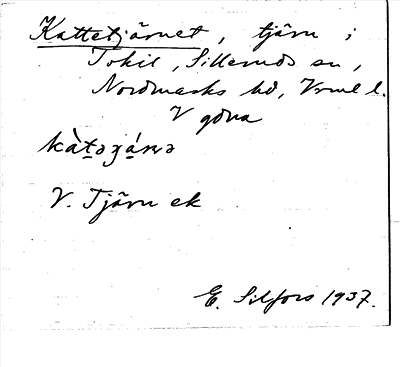 Kattetjärnet, tjärn i
Tokil, Sillerud sn,
Nordmarks hd, Vrml l.
V gdna
V. Tjärn ek
E. Silfors 1937.